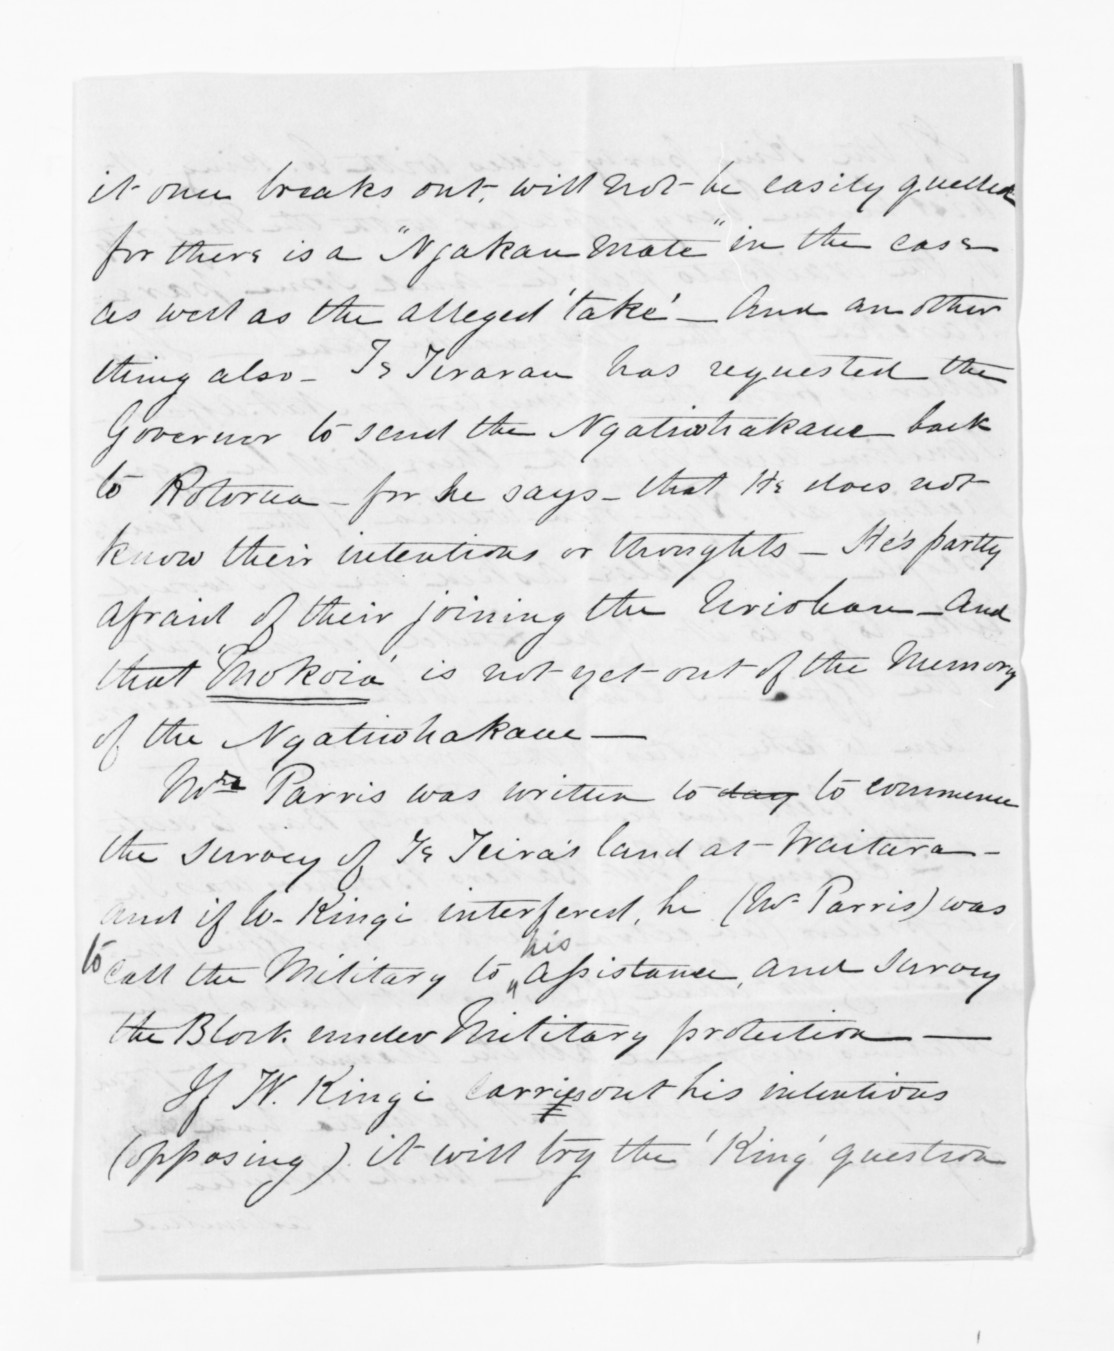 it once breaks out, will not be easily quelled
for there is a "Ngakau Mate" in the case
as well as the alleged 'take' – And another
thing also – Te Tirarau has requested the
Governor to send the Ngatiwhakaue back
to Rotorua – for he says – that He does not
know their intentions or thoughts – He's partly
afraid of their joining the Uriohau – And
that 'Mokoia' is not yet out of the Memory
of the Ngatiwhakaue —
Mr Parris was written to day to commence
the survey of Te Teira's land at Waitara –
and if W. Kingi interfered, he (Mr Parris) was
to call the Military to his assistance, and survey
the Block under Military protection —
If W. Kingi carries out his intentions
(opposing) it will try the 'King' question